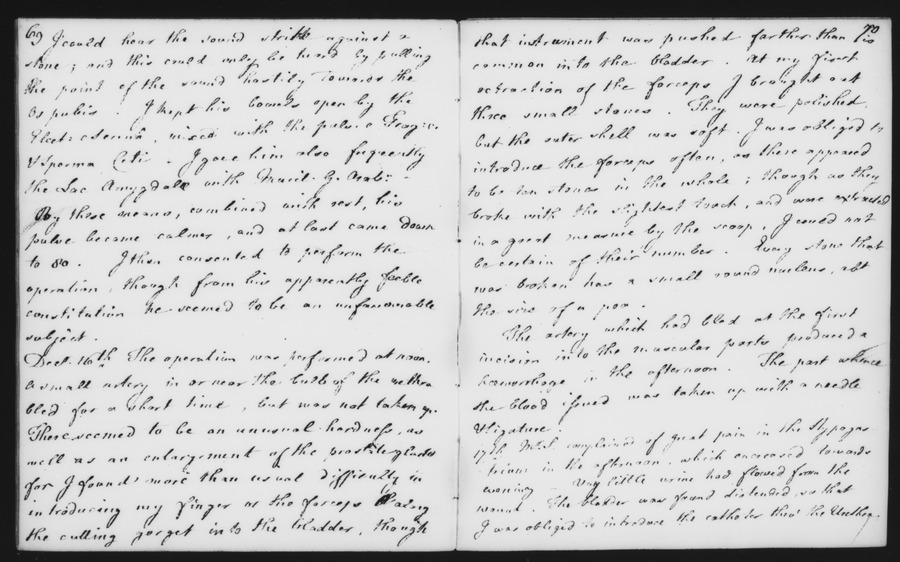 69
I could hear the sound strike against a
stone ; and this could only be heard by pulling
the point of the sound hastily towards the
Os pubis . I kept his bowels open by the
Elect. e Senna, mixed with the pulv. e Trag: c.
& Sperma Ceti . I gave him also frequently
the Lac Amygdala with Mucil. G. Arab: -
By these means, combined with rest, his
pulse became calmer , and at last came down
to 80 . I then consented to perform the
operation , though from his apparently feeble
constitution he seemed to be an unfavourable
subject .
Dect. 16th The operation was performed at noon.
A small artery in or near the bulb of the urethra
bled for a short time , but was not taken up.
There seemed to be an unusual hardness, as
well as an enlargement of the prostate gland
for I found more than usual difficulty in
introducing my finger or the forceps along
the cutting gorget into the bladder , though
70
that instrument was pushed farther than is
common into the bladder . At my first
extraction of the forceps I brought out
three small stones . They were polished,
but the outer shell was soft . I was obliged to
introduce the forceps often , as there appeared
to be ten stones in the whole ; though as they
broke with the slightest touch , and were extracted
in a great measure by the scoop , I could not
be certain of their number . Every stone that
was broken has a small round nucleus, abt
the size of a pea .
The artery which had bled at the first
incision into the muscular parts produced a
hæmorrhage in the afternoon . The part whence
the blood issued was taken up with a needle
& ligature .
17th complained of great pain in the Hypogas-
trium in the afternoon , which encreased towards
evening - Very little urine had flowed from the
wound . The bladder was found distended, so that
I was obliged to introduce the catheter thro' the Urethra.